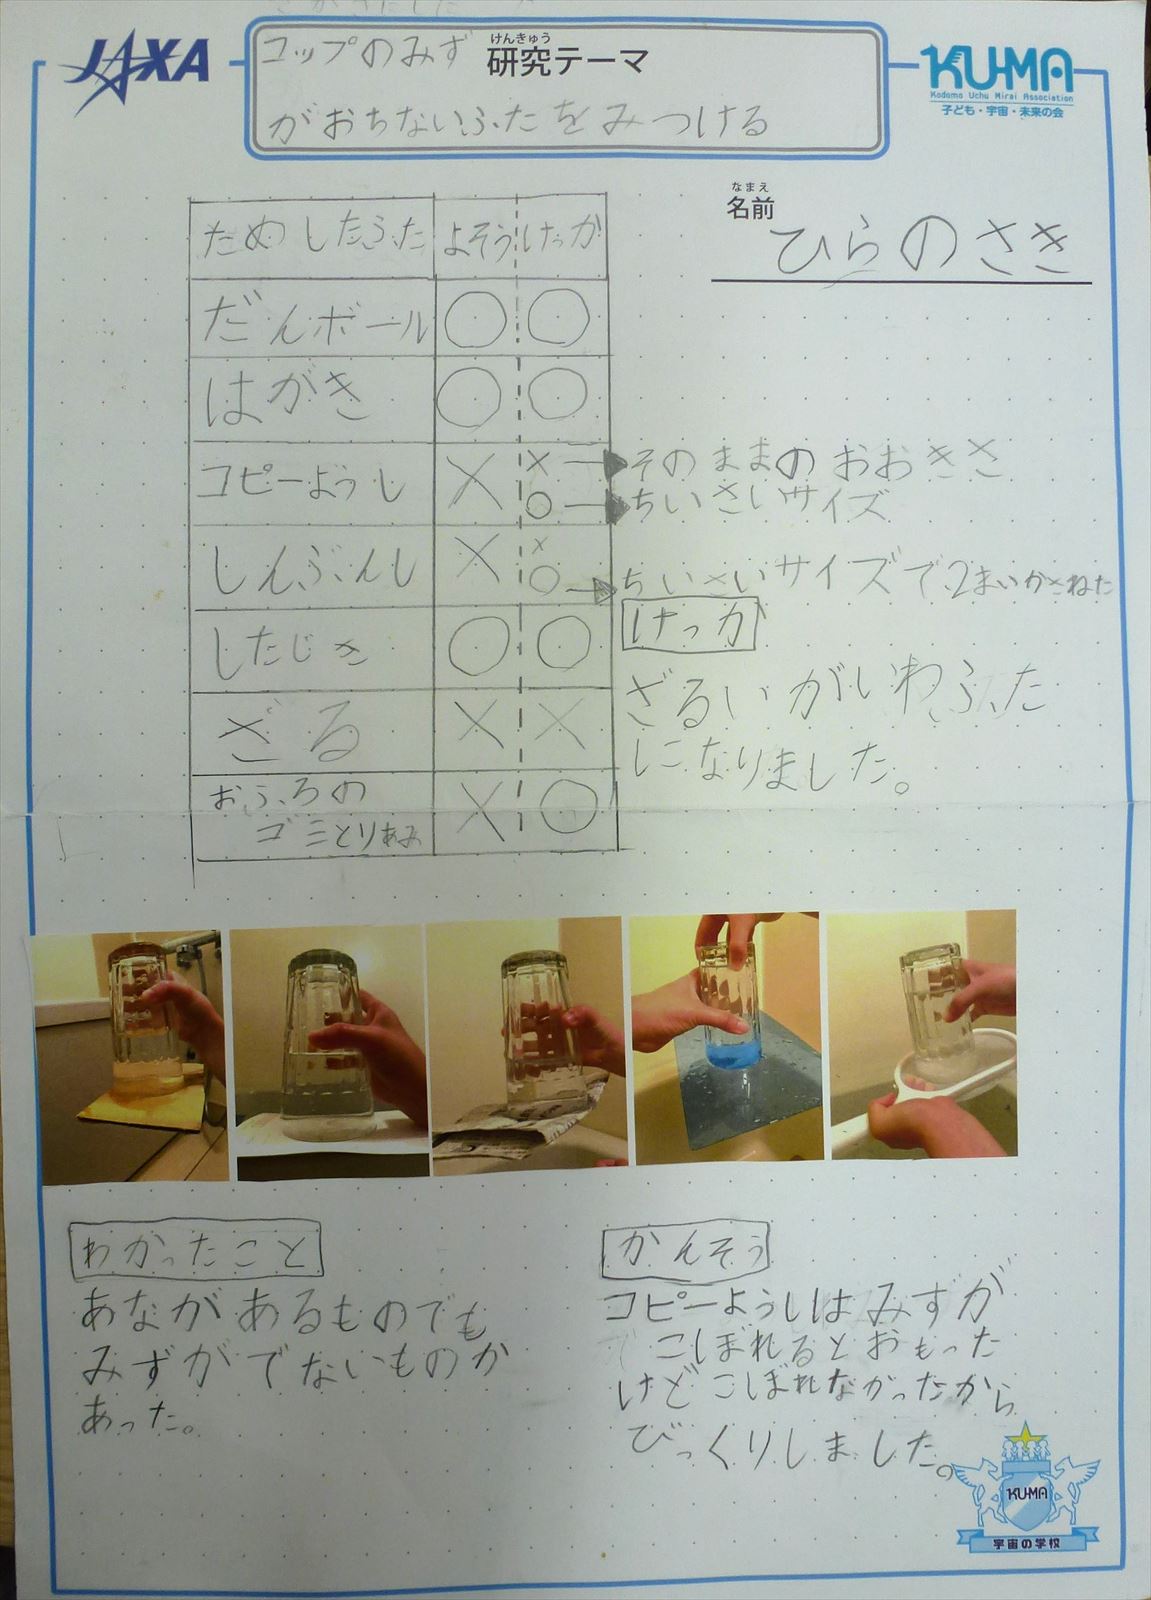 JAXA
コップのみず
けんきゅう
研究テーマ
がおちないふたをみつける
KU-MA
Kodomo Uchu Mirai Association
子ども・宇宙・未来の会
なまえ
名前
ひらのさき
ためしたふた よそう けっか
だんボール ○ ○
はがき ○ ○
コピーようし × × → そのままのおおきさ
○ → ちいさいサイズ
しんぶんし × ×
○ → ちいさいサイズで2まいかさねた
したじき ○ ○
ざる × ×
おふろの
ゴミとりあみ × ○
けっか
ざるいがいわふた
になりました。
わかったこと
あながあるものでも
みずがでないものか
あった。
かんそう
コピーようしはみずが
こしぼれるとおもった
けどこぼれなかったから
びっくりしました。
KU-MA
宇宙の学校